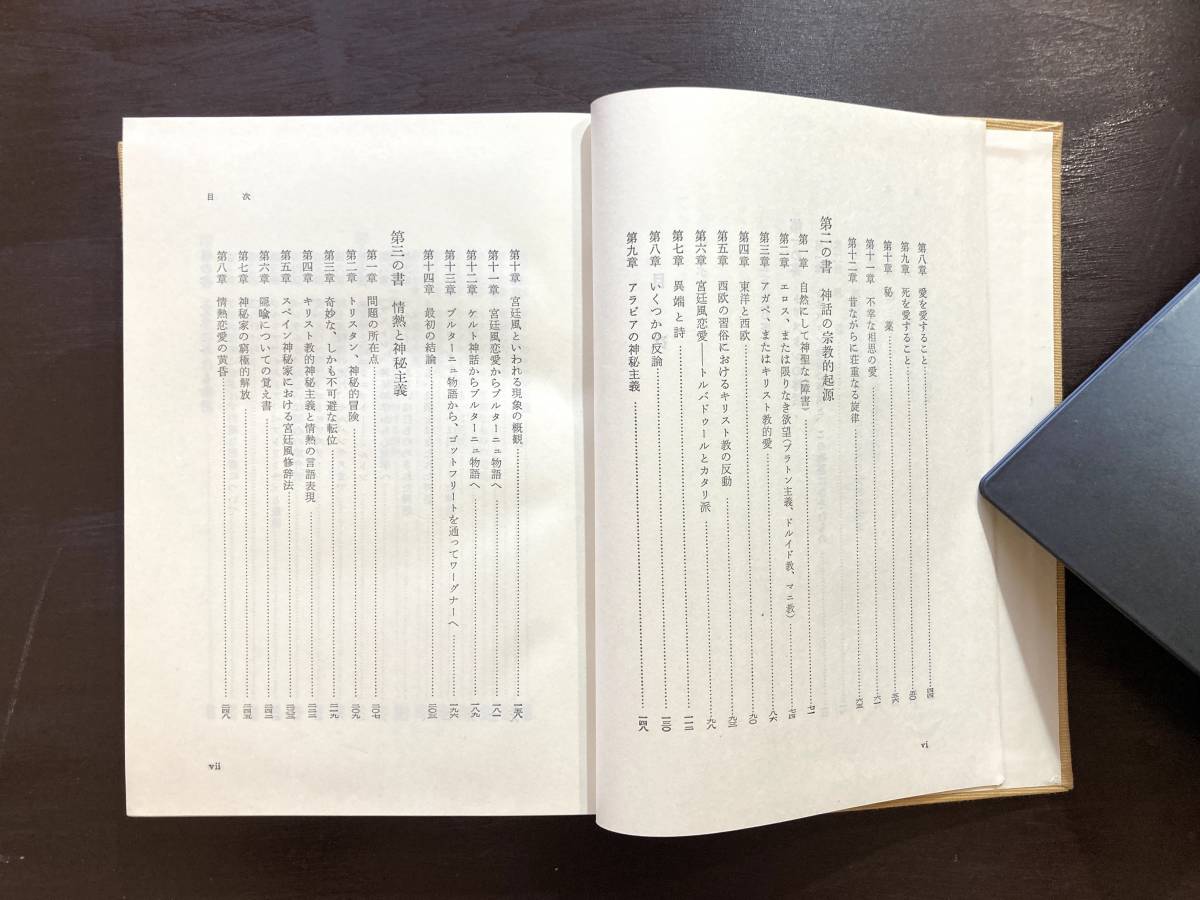 第八章 愛を愛すること……四四
第九章 死を愛すること……五〇
第十章 秘薬……五六
第十一章 不幸な相思の愛……六一
第十二章 昔ながらに荘重なる旋律……六五
第二の書 神話の宗教的起源
第一章 自然にして神聖な《障害》……七一
第二章 エロス、または限りなき欲望(プラトン主義、ドルイド教、マニ教)……七四
第三章 アガペ、またはキリスト教的愛……八六
第四章 東洋と西欧……九〇
第五章 西欧の習俗におけるキリスト教の反動……九三
第六章 宮廷風恋愛――トルバドゥールとカタリ派……九八
第七章 異端と詩……一一二
第八章 いくつかの反論……一三〇
第九章 アラビアの神秘主義……一四八
vi
目次
第十章 宮廷風といわれる現象の概観……一五八
第十一章 宮廷風恋愛からブルターニュ物語へ……一八一
第十二章 ケルト神話からブルターニュ物語へ……一八九
第十三章 ブルターニュ物語から、ゴットフリートを通ってワーグナーへ……一九六
第十四章 最初の結論……二〇三
第三の書 情熱と神秘主義
第一章 問題の所在点……二〇七
第二章 トリスタン、神秘的冒険……二〇九
第三章 奇妙な、しかも不可避な転位……二一九
第四章 キリスト教的神秘主義と情熱の言語表現……
第五章 スペイン神秘家における宮廷風修辞法……
第六章 隠喩についての覚え書……二四二
第七章 神秘家の窮極的解放……二四五
第八章 情熱恋愛の黄昏……二四八
vii